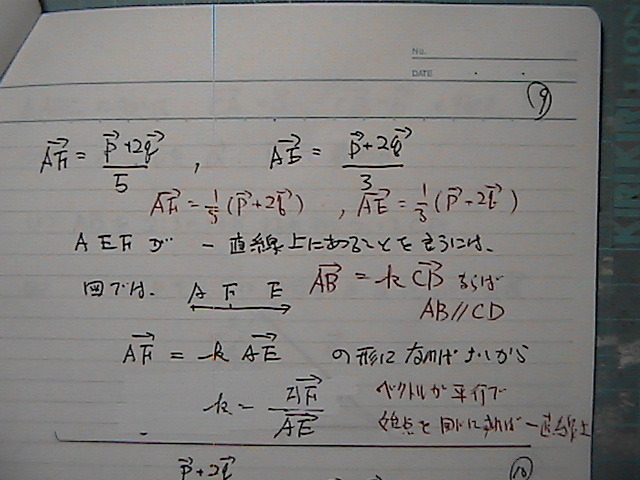 No.
DATE
⑨
AF→ = (p→+2q→)/5 , AE→ = (p→+2q→)/3
AF→ = 1/5 (p→+2q→) , AE→ = 1/3 (p→+2q→)
A E F が 一直線上にあることを言うには、
図では、 A F E AB→ = k CD→ ならば
AB // CD
AF→ = k AE→ の形になればよいから
k = AF→/AE→ ベクトルが平行で
始点を同じにすれば一直線上
⑩
p→+2q→
KIRIKINUTION